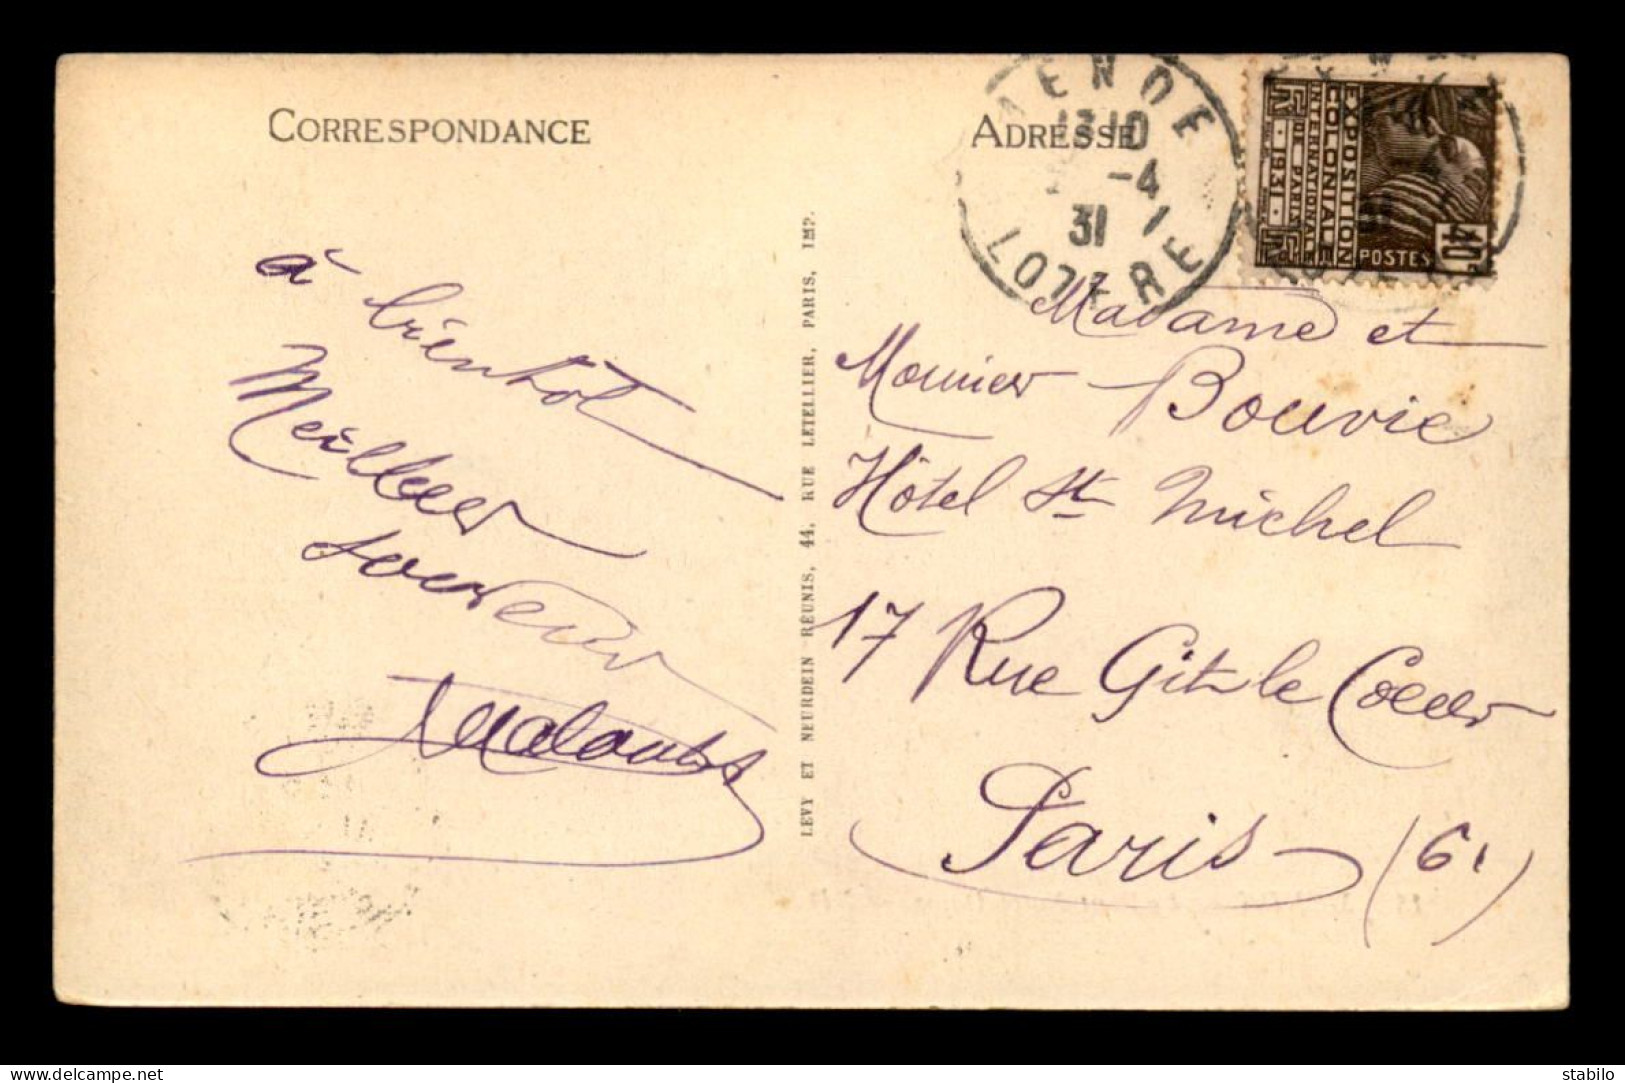 CORRESPONDANCE
à bientot
Meilleur
souvenir
ADRESSE
MENDE
13 10
-4
31
LOZERE
EXPOSITION
COLONIALE
INTERNATIONALE
DE PARIS
1931
POSTES
40c
Madame et
Monsieur Bouvie
Hôtel St Michel
17 Rue Git le Coeur
Paris (6)
LEVY ET NEURDEIN RÉUNIS, 44, RUE LETELLIER, PARIS, IMP.
stabilo
www.delcampe.net